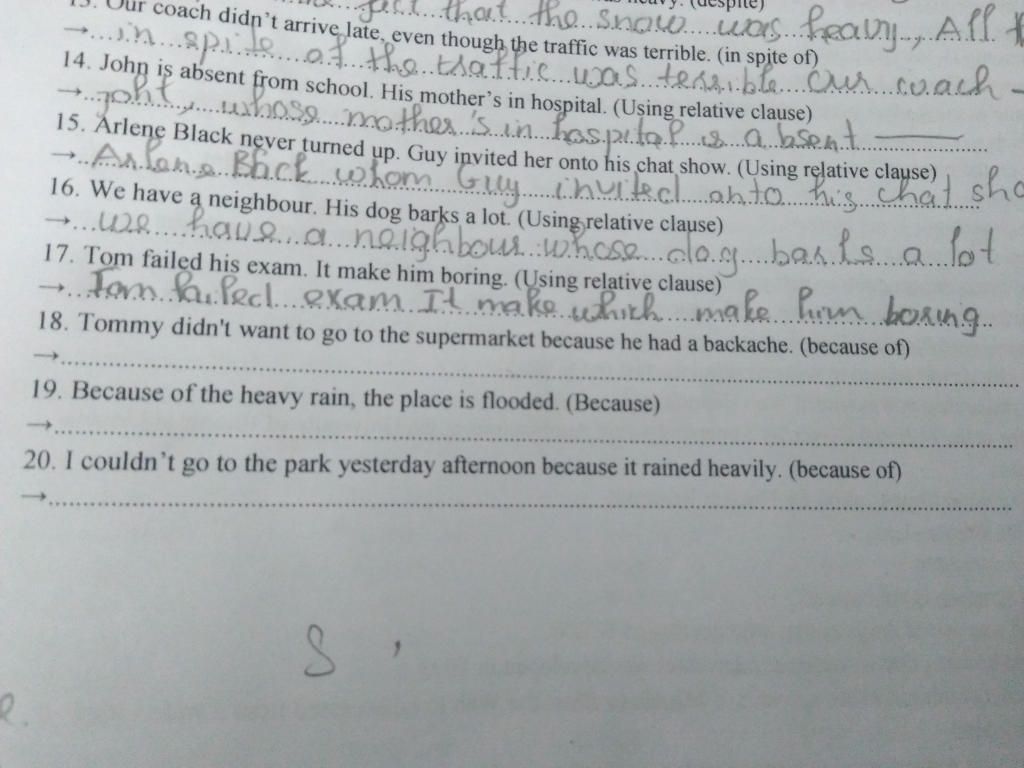 fact that the snow was heavy, All
13. Our coach didn't arrive late, even though the traffic was terrible. (in spite of)
→ in spite of the traffic was terrible our coach –
14. John is absent from school. His mother's in hospital. (Using relative clause)
→ John, whose mother's in hospital is absent
15. Arlene Black never turned up. Guy invited her onto his chat show. (Using relative clause)
→ Arlene Black whom Guy invited onto his chat sho
16. We have a neighbour. His dog barks a lot. (Using relative clause)
→ we have a neighbour whose dog barks a lot
17. Tom failed his exam. It make him boring. (Using relative clause)
→ Tom failed exam It make which make him boring
18. Tommy didn't want to go to the supermarket because he had a backache. (because of)
→
19. Because of the heavy rain, the place is flooded. (Because)
→
20. I couldn't go to the park yesterday afternoon because it rained heavily. (because of)
→
S ,
e.